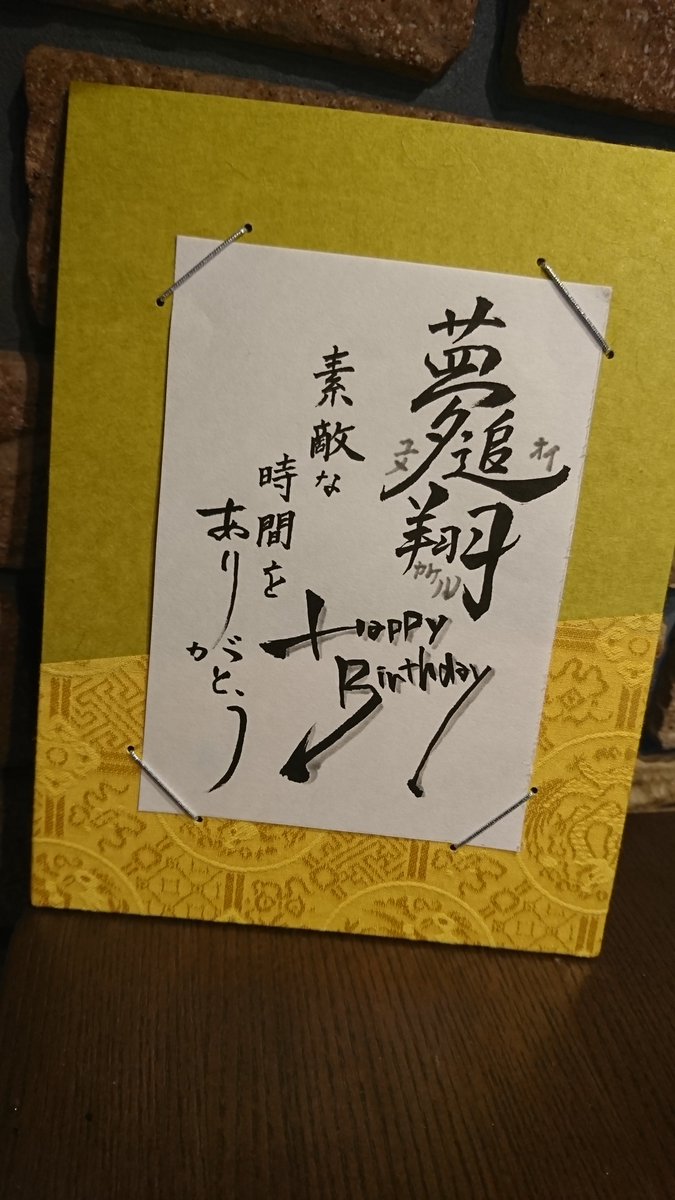 夢追翔
ユメ
オイ
カケル
素敵な
時間を
ありがとう
Happy
Birthday